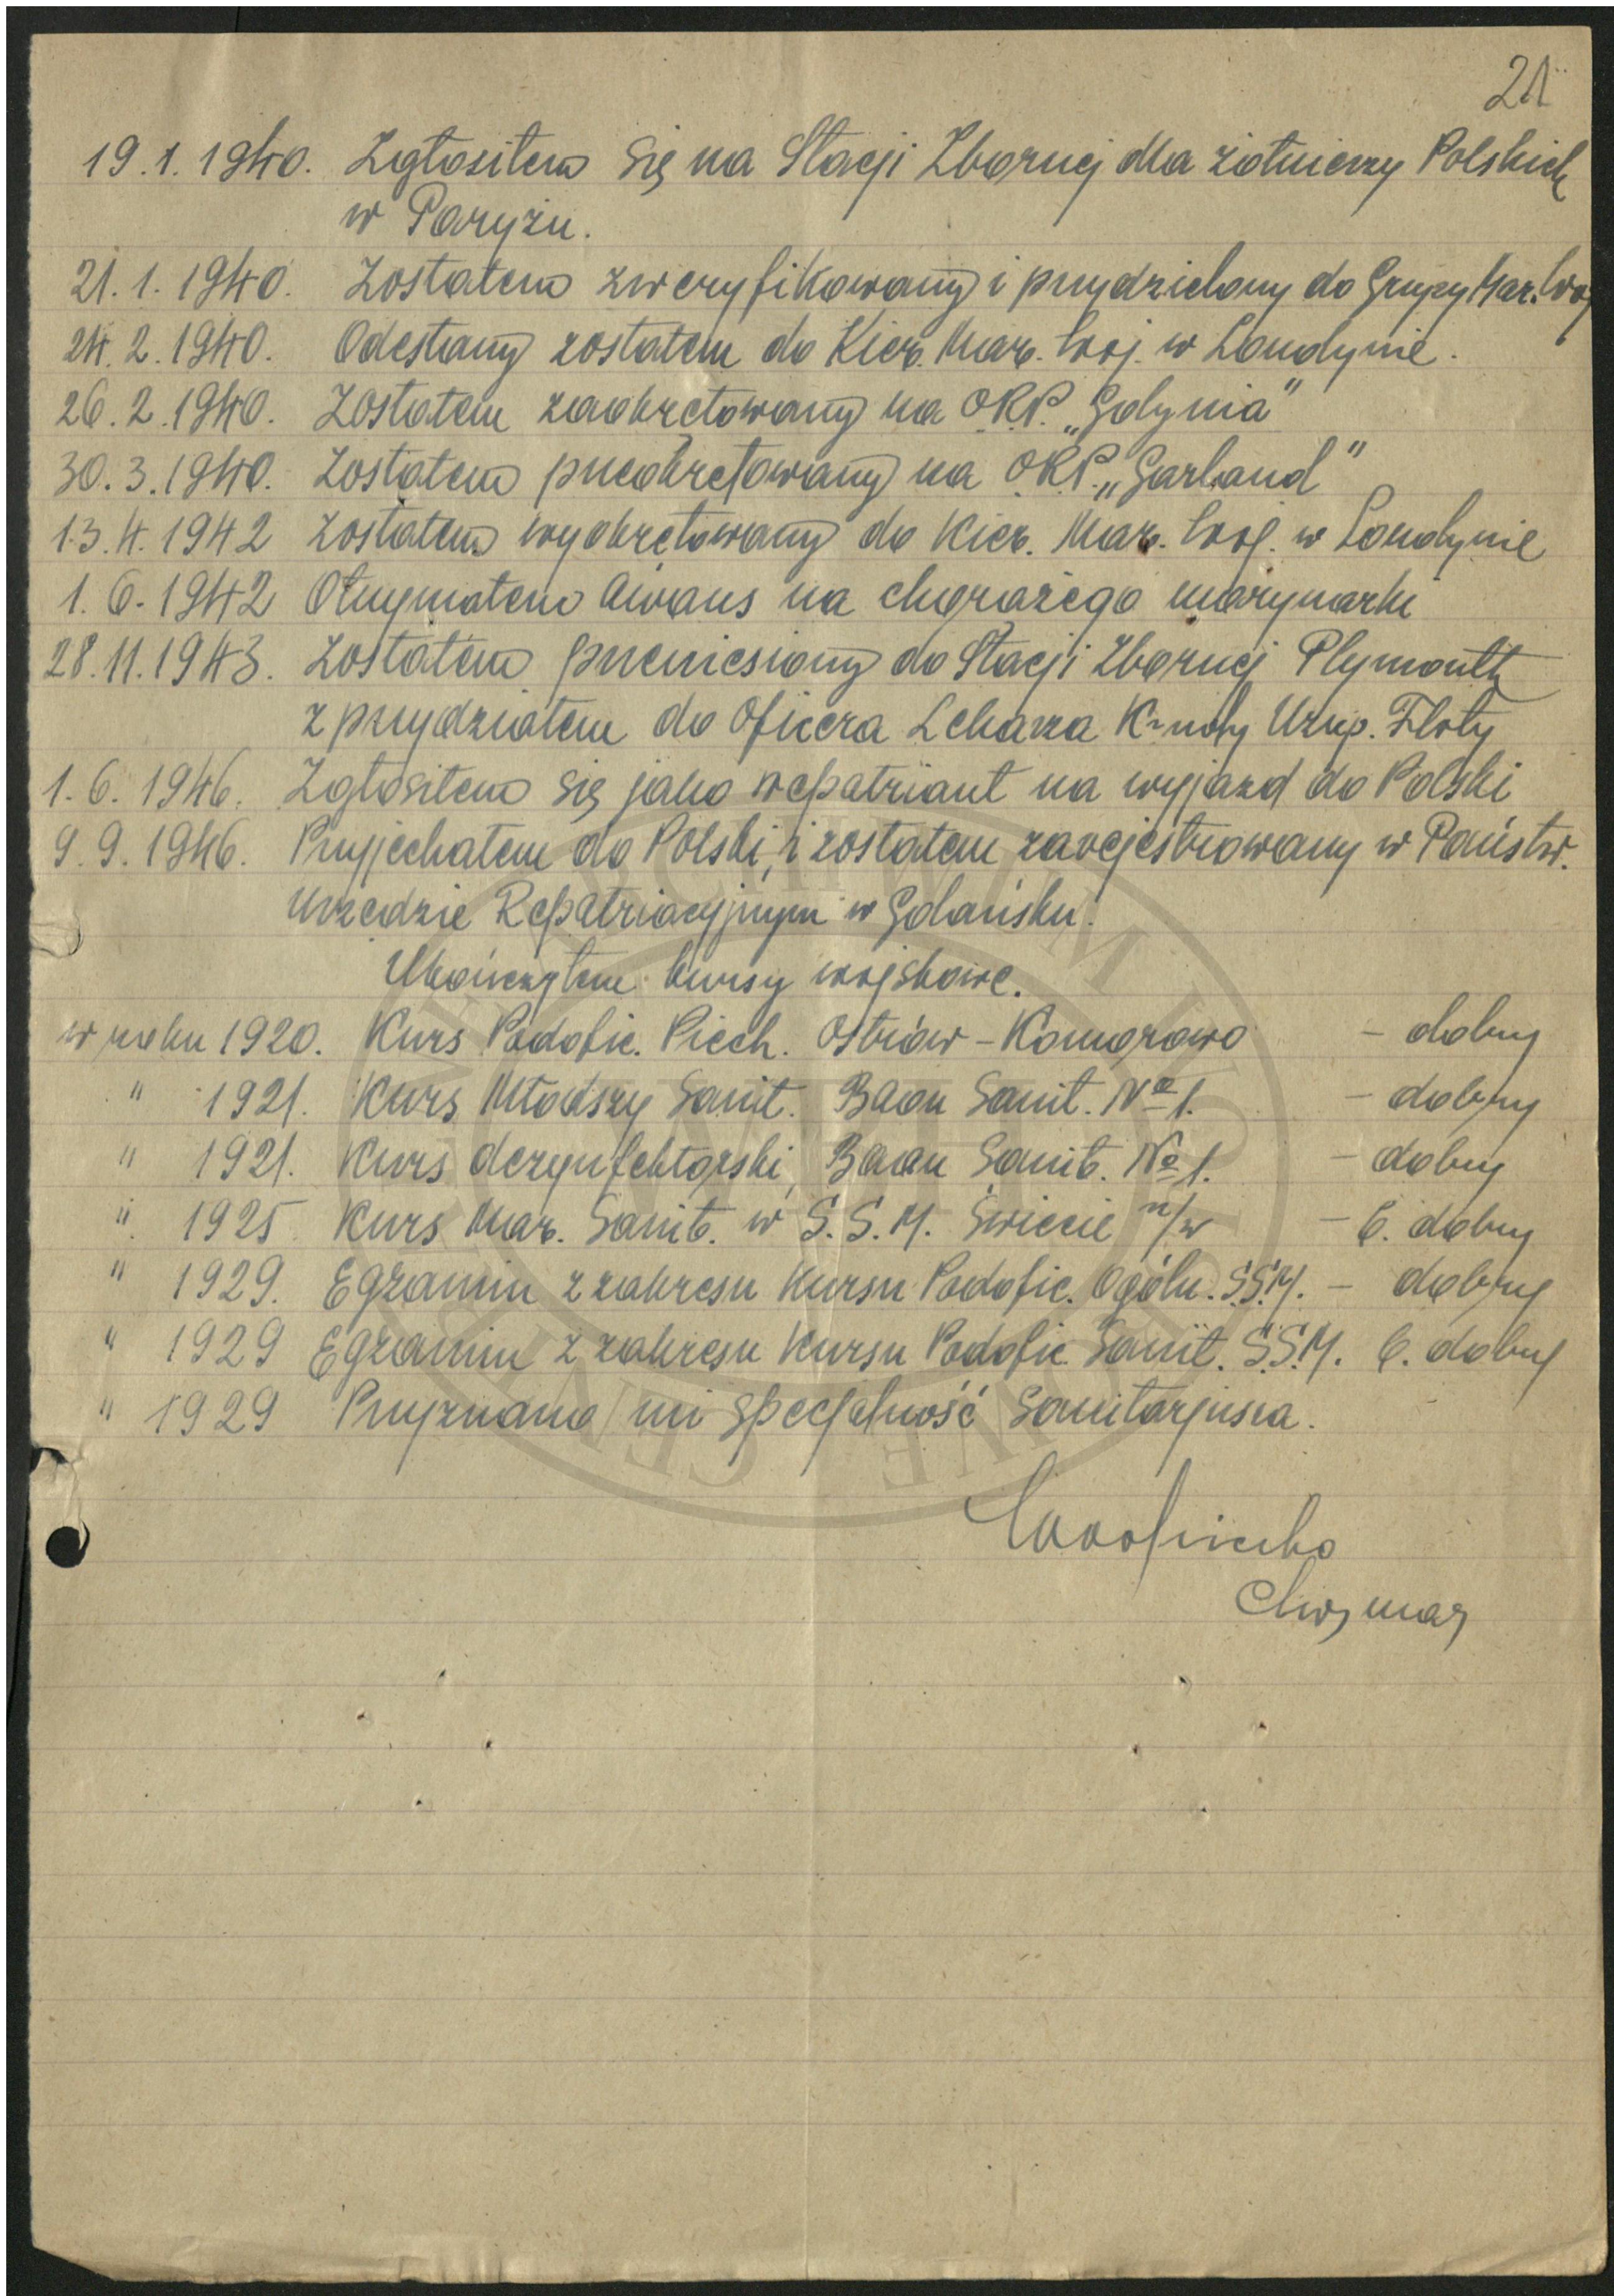 21
19.1.1940. Zgłosiłem się na Stacji Zbornej dla żołnierzy Polskich
w Paryżu.
21.1.1940. Zostałem zweryfikowany i przydzielony do Grupy Mar. Woj
24.2.1940. Odesłany zostałem do Kier. Mar. Woj. w Londynie.
26.2.1940. Zostałem zaokrętowany na O.R.P. „Gdynia"
30.3.1940. Zostałem przeokrętowany na O.R.P. „Garland"
13.4.1942 Zostałem wyokrętowany do Kier. Mar. Woj. w Londynie
1.6.1942 Otrzymałem awans na chorążego marynarki
28.11.1943. Zostałem przeniesiony do Stacji Zbornej Plymouth
z przydziałem do Oficera Lekarza K-ndy Uzup. Floty
1.6.1946. Zgłosiłem się jako repatriant na wyjazd do Polski
9.9.1946. Przyjechałem do Polski, i zostałem zarejestrowany w Państw.
Urzędzie Repatriacyjnym w Gdańsku.
Ukończyłem kursy wojskowe.
w roku 1920. Kurs Podofic. Piech. Ostrów - Komorowo - dobry
" 1921. Kurs Młodszy Sanit. Baon Sanit. No 1. - dobry
" 1921. Kurs dezynfektorski, Baon Sanit. No 1. - dobry
" 1925 Kurs Mar. Sanit. w S.S.M. Świecie n/w - b. dobry
" 1929. Egzamin z zakresu Kursu Podofic. Ogóln. S.S.M. - dobry
" 1929 Egzamin z zakresu Kursu Podofic. Sanit. S.S.M. b. dobry
" 1929 Przyznano mi specjalność Sanitarjusza.
Chor. mar